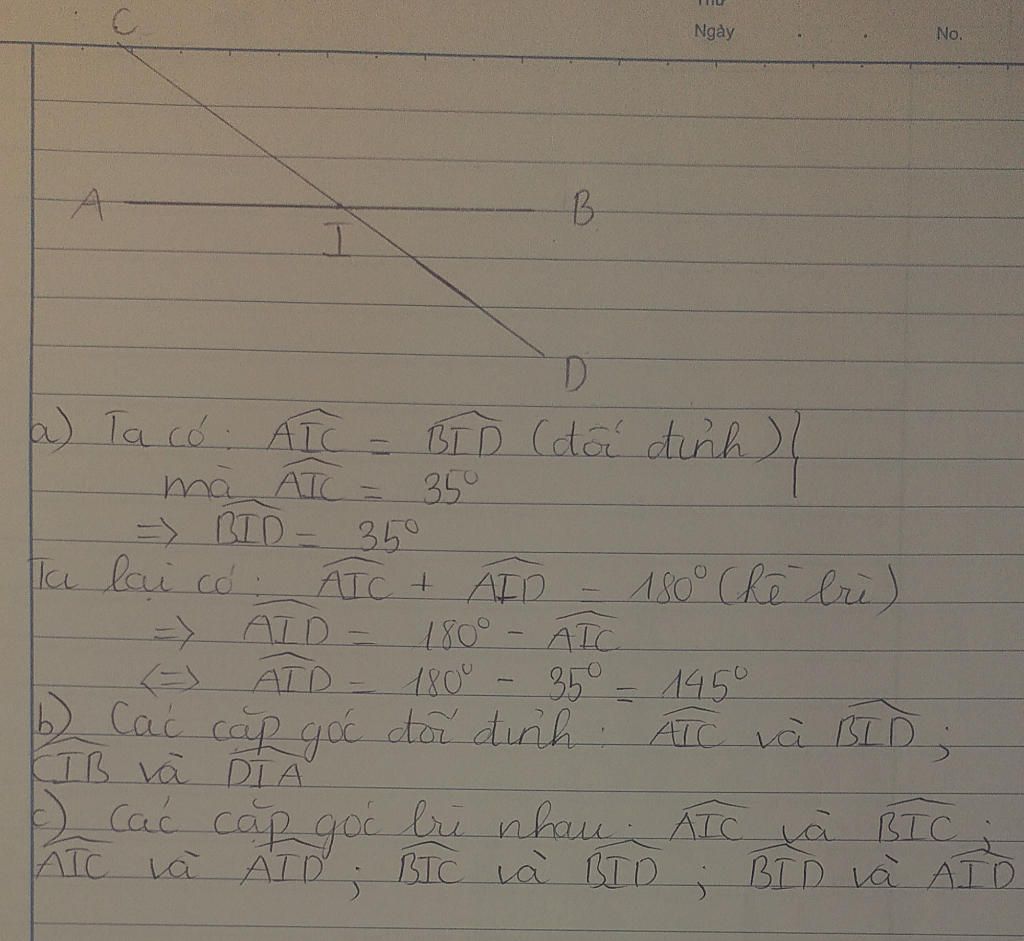 Thứ
Ngày . . No.
C
A B
I
D
a) Ta có: \widehat{AIC} = \widehat{BID} (đối đỉnh) }
mà \widehat{AIC} = 35°
=> \widehat{BID} = 35°
Ta lại có: \widehat{AIC} + \widehat{AID} = 180° (kề bù)
=> \widehat{AID} = 180° - \widehat{AIC}
<=> \widehat{AID} = 180° - 35° = 145°
b) Các cặp góc đối đỉnh: \widehat{AIC} và \widehat{BID};
\widehat{CIB} và \widehat{DIA}
c) Các cặp góc bù nhau: \widehat{AIC} và \widehat{BIC};
\widehat{AIC} và \widehat{AID}; \widehat{BIC} và \widehat{BID}; \widehat{BID} và \widehat{AID}